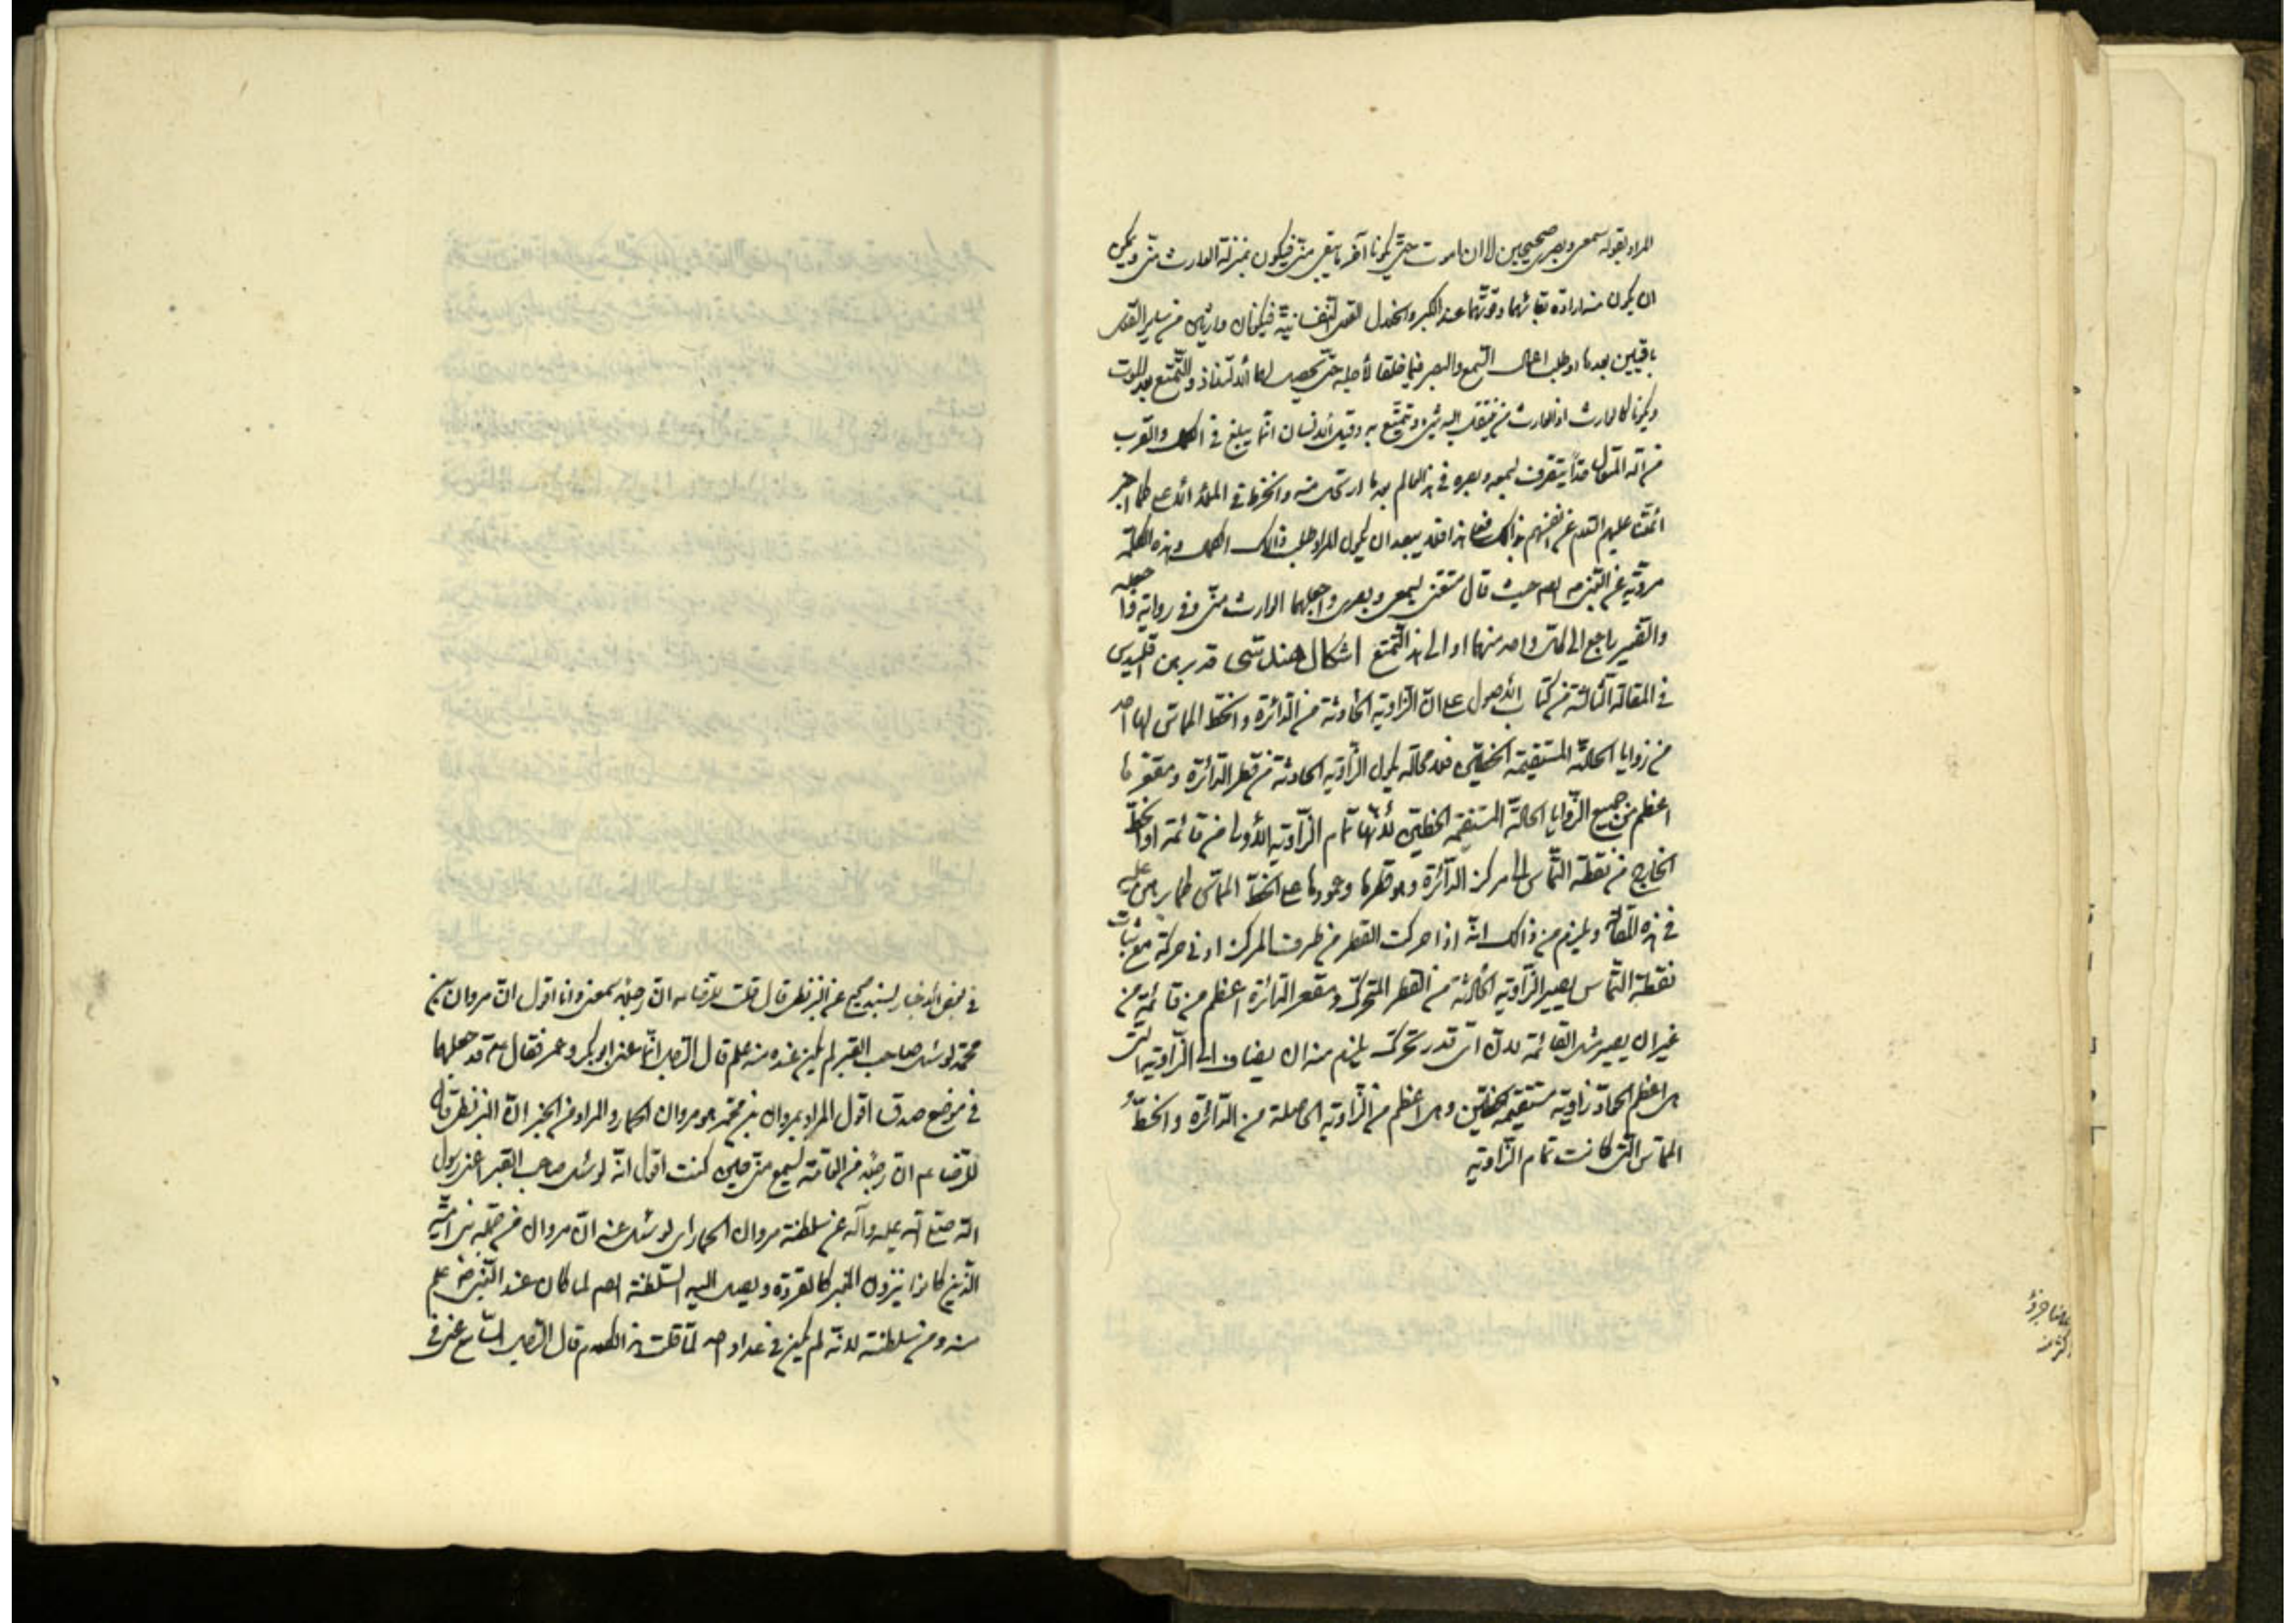 المراد بقوله سمعي وبصري صحيحين الا ان اموت حتى يكونا آخر ما يبقى منى فيكون بمنزلة الوارث منى ويمكن
ان يكون منه اراده بقائهما وقوتهما عند الكبر وانحلال القوى النفسانية فيكونان وارثين من ساير القوى
باقيين بعدها او طلب اعمال السمع والبصر فيما خلقا لأجله حتى يحصل لهما الالتذاذ والتمتع بعد الموت
ويكونا كالوارث اذ الوارث من ينتقل اليه شئ ويتمتع به وقيل الانسان انما يبلغ في الكمال والقرب
من الله المتعال حدا يتصرف بسمعه وبصره في هذا العالم بعد ما ارتحل منه وانخرط في الملأ الاعلى كما اخبر
ائمتنا عليهم السلام عن انفسهم بذالك فعلى هذا فلا يبعد ان يكون المراد طلب ذالك الكمال وهذه الكلمة
مروية عن النبي ص ايضا حيث قال متعنى بسمعى وبصرى واجعلهما الوارث منى وفى رواية واجعله
والضمير راجع الى كل واحد منهما او الى هذا التمتع اشكال هندسى قد برهن اقليدس
في المقالة الثالثة من كتاب الاصول على ان الزاوية الحادثة من الدائرة والخط المماس لها احد
من زوايا الحادة المستقيمة الخطين فلا محالة يكون الزاوية الحادثة من قطر الدائرة ومقعرها
اعظم من جميع الزوايا الحادة المستقيمة الخطين لانها تمام الزاوية الاولى من قائمة اذ الخط
الخارج من نقطة التماس الى مركز الدائرة وهو قطرها وعمودها على الخط المماس كما برهن عليه
في هذه المقالة ويلزم من ذالك انه اذا حركت القطر من طرف المركز ادنى حركة مع ثبات
نقطة التماس يصير الزاوية الحادثة من القطر المتحرك ومقعر الدائرة اعظم من قائمة من
غير ان يصير مثل القائمة لان اى قدر تحركت يلزم منه ان يضاف الى الزاوية التى
هى اعظم الحواد زاوية مستقيمة الخطين وهى اعظم من الزاوية الحاصلة من الدائرة والخط
المماس التى كانت تمام الزاوية
في بعض الاخبار بسند صحيح عن البزنطى قال قلت للرضا ع ان رجلا سمعنى وانا اقول ان مروان بن
محمد لو سئل صاحب القبر لم يكن عنده منه علم قال الرجل انما عنى ابو بكر وعمر فقال ع قد جعلهما
في موضع صدق اقول المراد بمروان بن محمد هو مروان الحمار والمراد من الخبر ان البزنطى قال
للرضا ع ان رجلا من العامة يسمع منى حين كنت اقول انه لو سئل صاحب القبر اعنى رسول
الله صلى الله عليه وآله عن سلطنة مروان الحمار اى لو سئل عنه ان مروان من جملة بنى امية
الذين كانوا ينزون المنبر كالقردة ويصل اليه السلطنة ايضا لما كان عند النبى ص علم
منه ومن سلطنته لانه لم يكن في عداد احد لما قلت هذا الكلام قال الرجل السامع عنى في